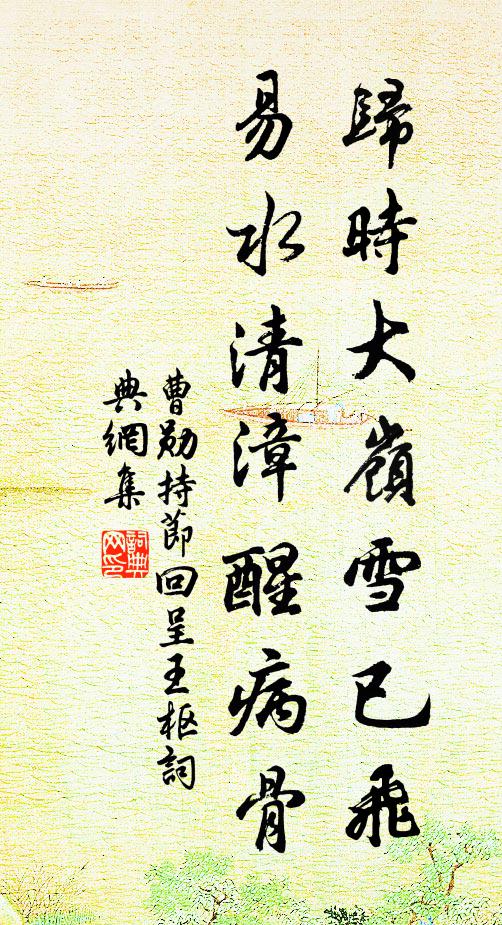 歸時大嶺雪已飛
易水清漳醒病骨
曹勛持節回呈王枢詞
典網集
詞典
网印